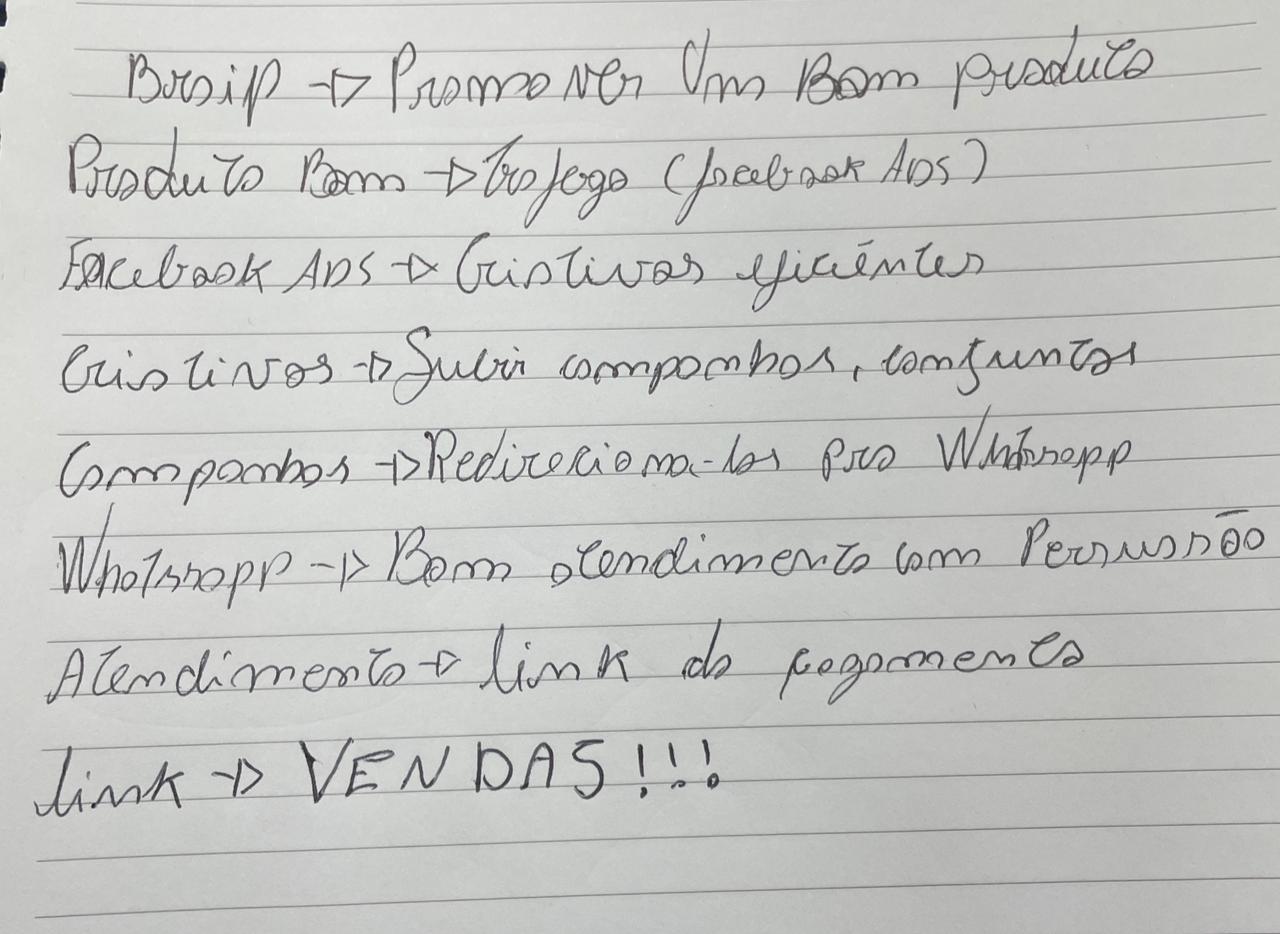 Braip → Promover Um Bom produto
Produto Bom → Trafego (facebook ADS)
Facebook ADS → Criativos eficiêntes
Criativos → Subir campanhas, conjuntos
Campanhas → Redireciona-las pro Whatsapp
Whatsapp → Bom atendimento com Persusão
Atendimento → link do pagamento
link → VENDAS!!!